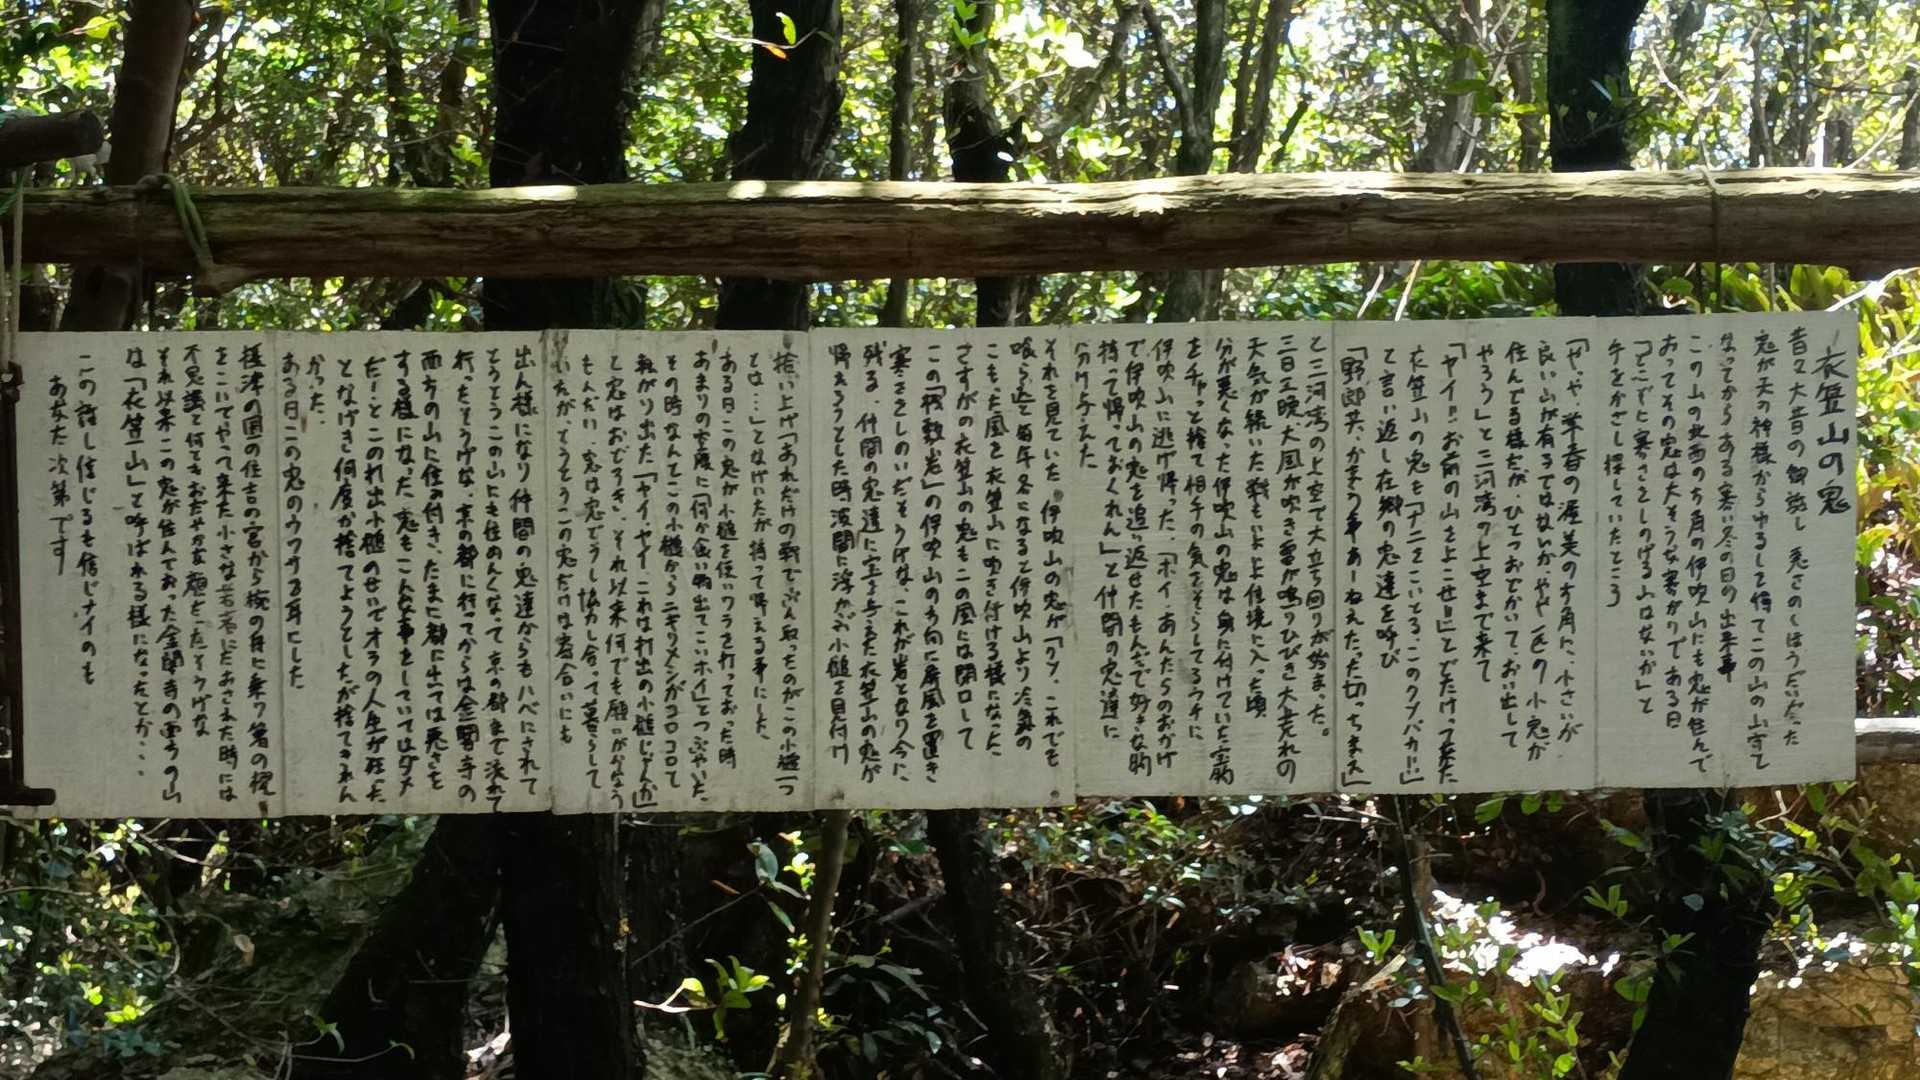 衣笠山の鬼
昔々大昔の御話し 悪さのしほうだいだった
鬼が天の神様からゆるしを得てこの山の山すて
なってからある寒い冬の日の出来事
この山の北西の方角の伊吹山にも鬼が住んで
おってその鬼は大そうな寒がりである日
「どこぞに寒さをしのげる山はないか」と
手をかざし探していたところ
「やゝや 常春の渥美の方角に、小さいが
良い山が有るではないか やゝや 一匹の小鬼が
住んでる様だが、ひとつおどかいて、おい出して
やろう」と三河湾の上空まで来て
「ヤイ!! お前の山をよこせ!!」とどなけって来た
衣笠山の鬼も「ナニをこいとる、このクソバカ!!」
と言い返し在郷の鬼達を呼び
「野郎共、かまう事あーねえたった切っちまえ」
と三河湾の上空で大立ち回りが始まった。
三日三晩大風が吹き雷が鳴りひびき大荒れの
天気が続いた戦もいよいよ佳境に入った頃
分が悪くなった伊吹山の鬼は身に付けていた宝物
をチャッと捨て相手の気をそらしてるウチに
伊吹山に逃げ帰った、「ホイ、あんたらのおかげ
で伊吹山の鬼を追い返せたもんで好きな物
持って帰っておくれん」と仲間の鬼達に
分け与えた
それを見ていた 伊吹山の鬼が「クソ、これでも
喰らえ」と毎年冬になると伊吹山より冷気の
こもった風を衣笠山に吹き付ける様になった
さすがの衣笠山の鬼もこの風には閉口して
この「桟敷岩」の伊吹山の方向に屏風を置き
寒さをしのいだそうげな、これが岩となり今に
残る、仲間の鬼達に宝を与えた衣笠山の鬼が
帰えろうとした時波間に浮かぶ小槌を見付け
拾い上げ「あれだけの戦でぶん取ったのがこの小槌一つ
とは…」となげいたが持って帰える事にした、
ある日この鬼が小槌を使いワラを打っておった時
あまりの空腹に「何か食い物出てこいホイ」とつぶやいた
その時なんとこの小槌からニギリメシがコロコロコロと
転がり出た「ヤイ、ヤイ これは打出の小槌じゃんか」
と鬼はおどろき、それ以来何でも願いがかなう
もんだい、鬼は鬼どうし協力し合って暮らして
いたが、とうとうこの鬼だけは寄合いにも
出ん様になり仲間の鬼達からもハバにされて
とうとうこの山にも住めんくなって京の都まで流れて
行ったそうげな、京の都に行ってからは金閣寺の
西方の山に住み付き、たまに都に出ては悪さを
する様になった、鬼も「こんな事をしていてはダメ
だ!」とこの打出小槌のせいでオラの人生が狂った
となげき何度か捨てようとしたが捨てきれん
かった、
ある日この鬼のウワサを耳にした
摂津の国の住吉の宮から椀の舟に乗り箸の櫂
をこいでやって来た小さな若者にたおされた時には
不思議と何ておだやかな顔だったそうげな
それ以来この鬼が住んでおった金閣寺の西方の山
は「衣笠山」と呼ばれる様になったとか・・・
この話し信じるも信じナイのも
あなた次第です